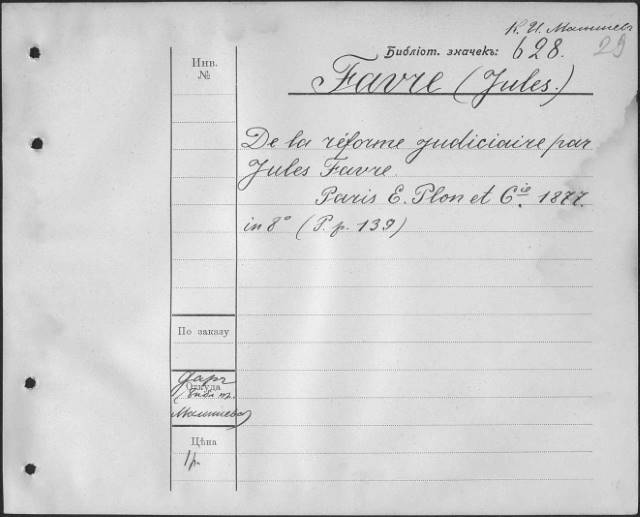 К. И. Малышев
Библіот. значекъ: 628. 29
Favre (Jules.)
Инв.
№
De la réforme judiciaire par
Jules Favre.
Paris E. Plon et Cie. 1877.
in 8° (P. p. 139)
По заказу
Даръ
Откуда
(библ. пр.
Малышева)
Цѣна
1р.